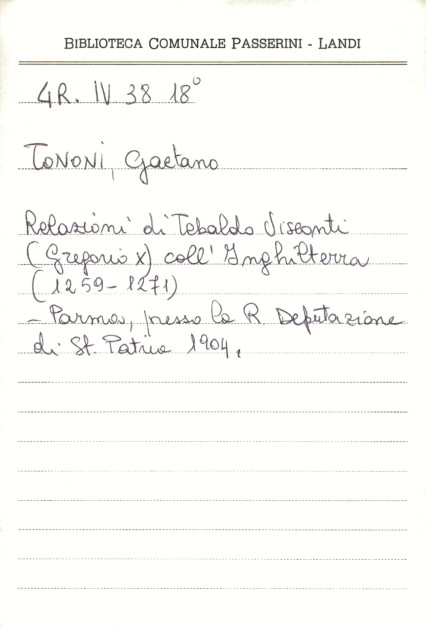 BIBLIOTECA COMUNALE PASSERINI - LANDI
4R. IV 38 18°
TONONI, Gaetano
Relazioni di Tebaldo Visconti
(Gregorio X) coll' Inghilterra
(1259 - 1271)
- Parma, presso la R. Deputazione
di St. Patria 1904.